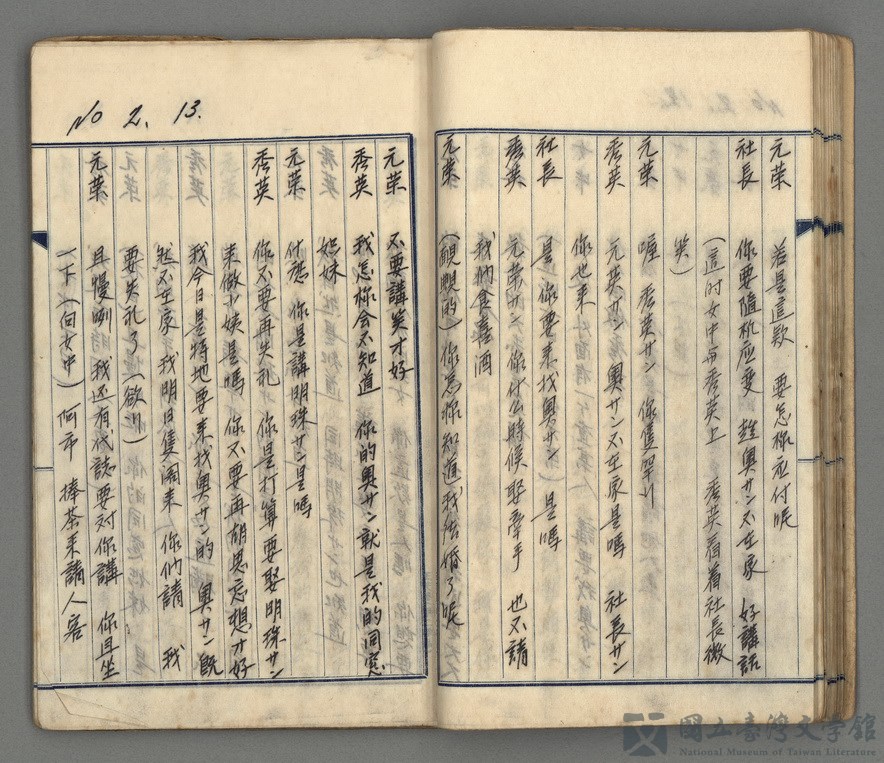 元荣 若是這款 要怎你应付呢
社長 你要隨机应变 趁奥サン不在家 好講話
(這时女中与秀英上 秀英看着社長微
笑)
元荣 喔 秀英サン 你隻罕行
秀英 元英サン 奥サン不在家是嗎 社長サン
你也来
社長 是 你要来找奥サン 是嗎
秀英 元荣サン 你什么時候娶牽手 也不請
我們食喜酒
元荣 (靦覥的) 你怎你知道我結婚了呢
No 2. 13.
元荣 不要講笑才好
秀英 我怎你会不知道 你的奥サン就是我的同窓
姐妹
元荣 什麽 你是講明珠サン是嗎
秀英 你不要再失礼 你是打算要娶明珠サン
来做小姨是嗎 你不要再胡思忘想才好
我今日是特地要来找奥サン的 奥サン既
然不在家 我明日隻閣来 你們請 我
要失礼了 (欲行)
元荣 且慢咧 我还有代誌要对你講 你且坐
一下 (向女中) 阿市 捧茶来請人客
國立臺灣文學館
National Museum of Taiwan Literature